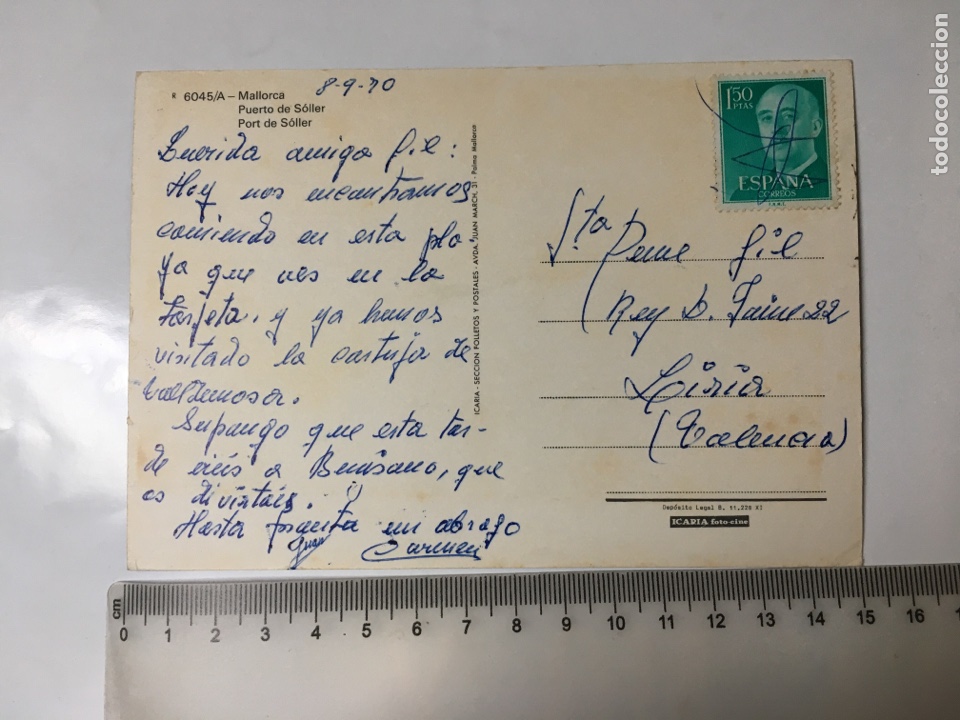 8-9-70
R 6045/A – Mallorca
Puerto de Sóller
Port de Sóller
Querida amiga Gil:
Hoy nos encontramos
comiendo en esta pla
ya que ves en la
tarjeta. y ya hemos
visitado la cartuja de
Valldemosa.
Supongo que esta tar-
de iréis a Benisano, que
os divirtáis.
Hasta pronto un abrazo
Juan Carmen
ICARIA - SECCION FOLLETOS Y POSTALES - AVDA. JUAN MARCH, 31 - Palma Mallorca
1,50
PTAS
ESPAÑA
CORREOS
Srta
Gil
Rey D. Jaime 22
Liria
(Valencia)
Depósito Legal B. 11.220 XI
ICARIA foto-cine
todocoleccion
cm
0 1 2 3 4 5 6 7 8 9 10 11 12 13 14 15 16